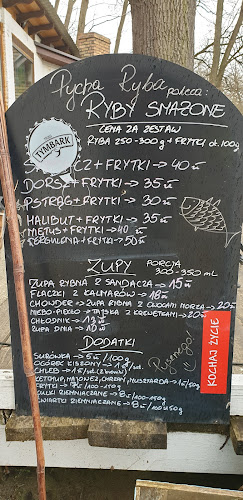 Pycha Ryba poleca:
RYBY SMAŻONE
CENA ZA ZESTAW
RYBA 250-300g + FRYTKI ok. 100g
TYMBARK
CZ+FRYTKI → 40zł
DORSZ+FRYTKI → 35zł
PSTRĄG+FRYTKI → 30zł
HALIBUT+FRYTKI → 35zł
MIĘTUS+FRYTKI → 40zł
+FRYTKI → 50zł
ZUPY PORCJA 300-350 ML
ZUPA RYBNA Z SANDACZA → 15zł
FLACZKI Z KALMARÓW → 18zł
CHOWDER → ZUPA RYBNA Z OWOCAMI MORZA → 20zł
NIEBO-PIEKŁO → TAJSKA Z KREWETKAMI → 20zł
CHŁODNIK → 13zł
ZUPA DNIA → 10zł
DODATKI
SURÓWKA → 5zł/100g
OGÓREK KISZONY → 1zł/szt
CHLEB → 1zł/szt (2 kromki)
KETCHUP, MAJONEZ, CHRZAN, MUSZTARDA → 1zł/50g
FRYTKI → 7zł/100-150g
KULKI ZIEMNIACZANE → 8zł/100-150g
ĆWIARTKI ZIEMNIACZANE → 8zł/100-150g
Pysznego!
KOCHAJ ŻYCIE